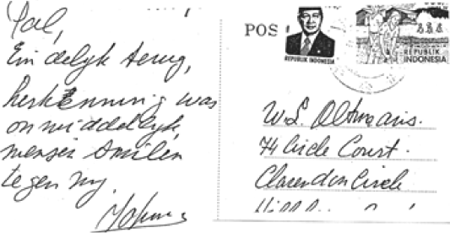 Eindelyk terug,
herkenning was
onmiddelyk,
mensen smilen
tegen my.
POS
REPUBLIK INDONESIA
REPUBLIK
INDONESIA
W.L. Oltmans.
74 Circle Court.
Clarendon Circle